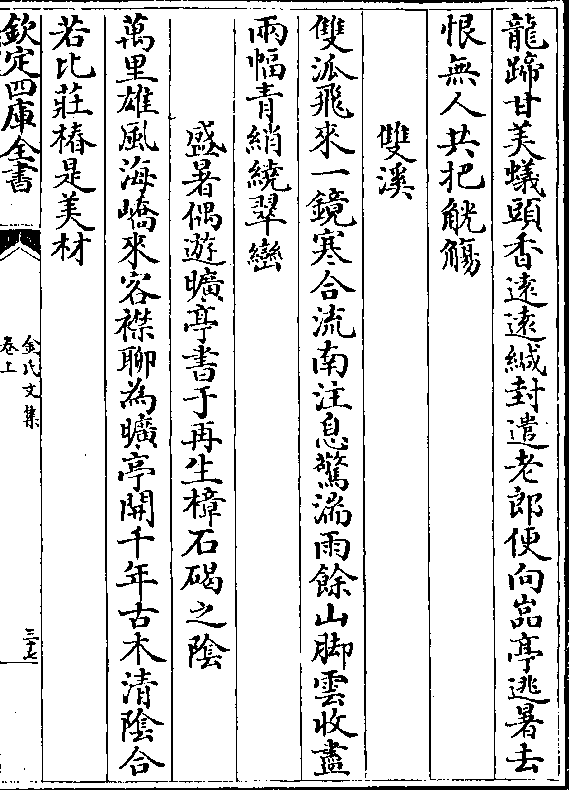 龍蹄甘美蟻頭香遠遠緘封遣老郎便向嵓亭逃暑去
恨無人共把觥觴
雙溪
雙派飛來一鏡寒合流南注息驚湍雨餘山脚雲收盡
兩幅青綃繞翠巒
盛暑偶遊曠亭書于再生樟石碣之陰
萬里雄風海嶠來客襟聊為曠亭開千年古木清陰合
若比莊椿是美材
欽定四庫全書
金氏文集
卷上
三十七